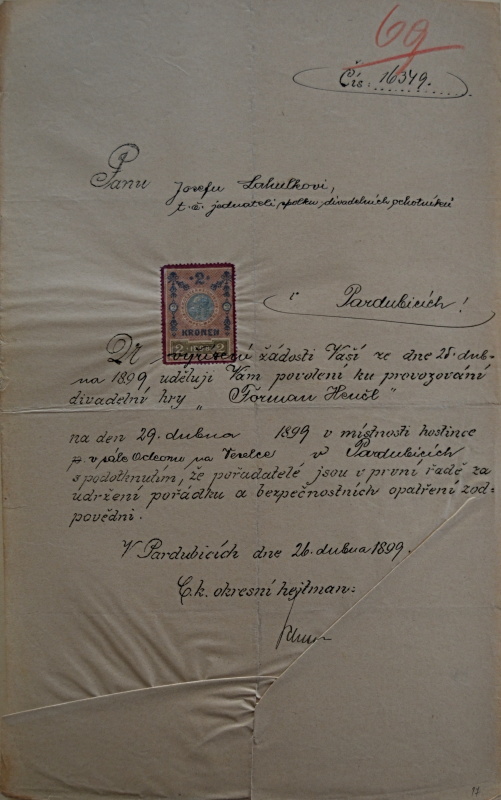 69
Čís. 16349.
Panu Josefu Lahulkovi,
t. č. jednateli spolku divadelních ochotníků
v Pardubicích!
2
KRONEN
2 2
Du vyřízení žádosti Vaší ze dne 25. dub-
na 1899 uděluji Vám povolení ku provozování
divadelní hry „Forman Henšl"
na den 29. dubna 1899 v místnosti hostince
p. v sále Odeonu na Veselce v Pardubicích
s podotknutím, že pořadatelé jsou v první řadě za
udržení pořádku a bezpečnostních opatření zod-
povědni.
V Pardubicích dne 26. dubna 1899.
C. k. okresní hejtman:
17